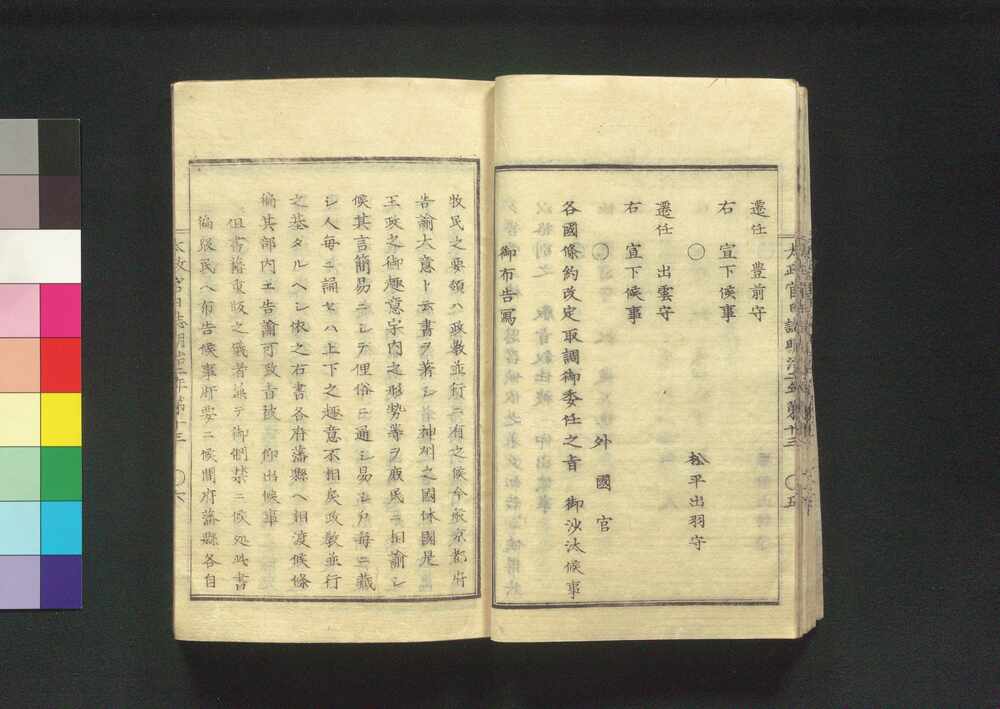 遷任　豊前守
右　宣下候事
○　松平出羽守
遷任　出雲守
右　宣下候事
○　外國官
各國條約改定取調御委任之旨　御沙汰候事
御布告寫
太政官日誌明治二年第十三　○五
牧民之要領ハ政教並行ニ有之候今般京都府
告諭大意ト云書ヲ著シ神州之國体國是
王政之御趣意宇内之形勢等ヲ庶民ニ相諭シ
候其言簡易ニシテ俚俗ニ通シ易シ戸毎ニ藏
シ人毎ニ誦セハ上下之趣意不相矣政教並行
之基タルヘシ依之右書各府藩縣ヘ相渡候條
徧其部内エ告諭可致旨被　仰出候事
但書籍重版之儀者兼テ御制禁ニ候処此書
徧衆民ヘ布告候事肝要ニ候間府藩縣各自
太政官日誌明治二年第十三　○六